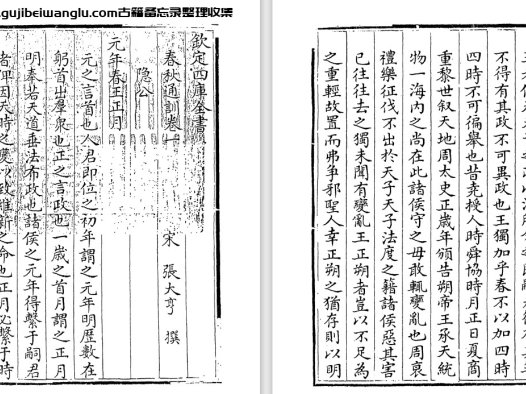 .gujibeiwanglu.com古籍备忘录整理收集
欽定四庫全書
春秋通訓卷一
宋 張大亨 撰
隐公
元年春王正月
元之言首也人君即位之初年謂之元年明歷數在
躬首出羣衆也正之言政也一歲之首月謂之正月
明奉若天道垂法布政也諸侯之元年得繫于嗣君
者俾因天時之變以致維新之命也正月必繫于時
不得有其政不可異政也王獨加乎春不以加四時
四時不可徧舉也昔堯授人時舜協時月正日夏商
重黎世叙天地周太史正歲年頒告朔帝王承天統
物一海内之尚在此諸侯守之毋敢輒變亂也周衰
禮樂征伐不出於天子天子法度之籍諸侯惡其害
已往往去之獨未聞有變亂王正朔者豈以不足為
之重輕故置而弗争邪聖人幸正朔之猶存則以明